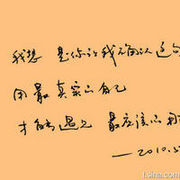 我想 是你让我承认这句
用最真实的自己
才能遇见 最应该的那
—2010.5
t.sina.com